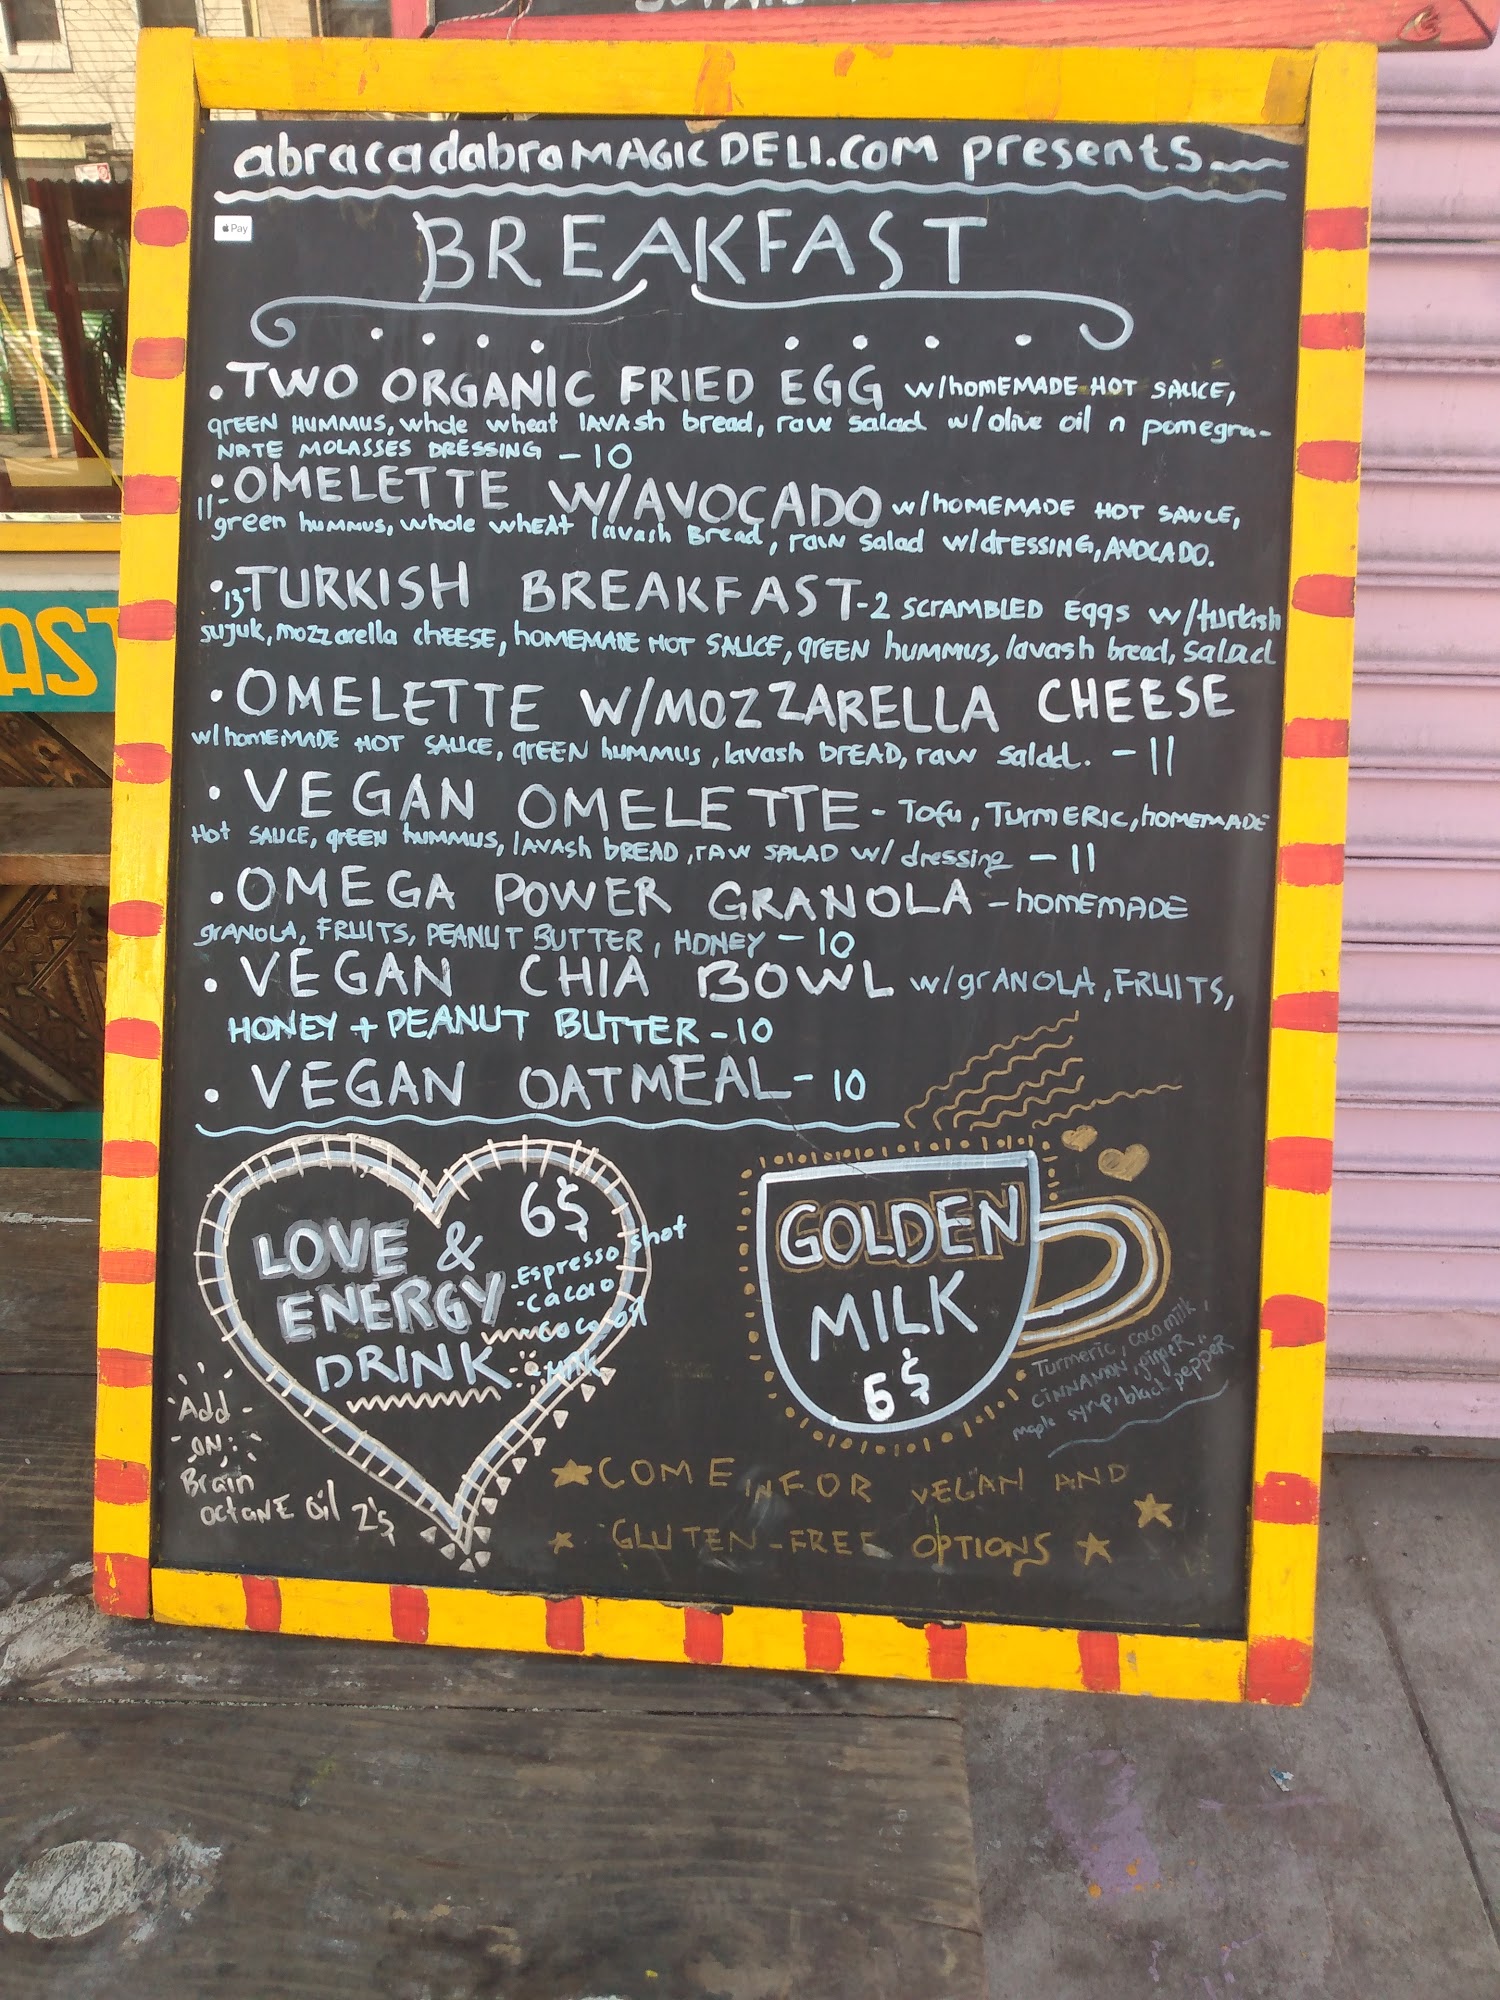 abracadabra MAGIC DELI.COM presents
Pay
BREAKFAST
.TWO ORGANIC FRIED EGG w/homEMADE HOT SAUCE,
grEEN HUMMUS, whole wheat lAVAsh bread, raw salad w/olive oil n pomegra-
NATE MOLASSES DRESSING - 10
.OMELETTE W/AVOCADO w/HOMEMADE HOT SAUCE,
11- green hummus, whole whEAt lavash Bread, raw salad w/drESSING, AVOCADO.
.13-TURKISH BREAKFAST-2 SCRAMBLED Eggs w/turkish
sujuk, mozzarella chEESE, HOMEMADE HOT SAUCE, grEEN hummus, lavash bread, salad
.OMELETTE W/MOZZARELLA CHEESE
w/homEMADE HOT SAUCE, grEEN hummus, lavash bREAD, raw salad. - 11
.VEGAN OMELETTE - Tofu, TurmERIC, HOMEMADE
Hot SAUCE, grEEN hummus, lAVASh bREAD, rAW SALAD w/ dressing - 11
.OMEGA POWER GRANOLA - HOMEMADE
grANOLA, FRUITS, PEANUT BUTTER, HONEY - 10
.VEGAN CHIA BOWL w/grANOLA, FRUITS,
HONEY + PEANUT BUTTER - 10
.VEGAN OATMEAL - 10
LOVE & ENERGY DRINK 6$
-Espresso shot
-cacao
-coco oil
-milk
Add-
ON:
Brain
octANE oil 2$
GOLDEN
MILK
6$
Turmeric, coco milk,
CINNAMON, gingER,
maple syrup, black pepper
COME IN FOR VEGAN AND
GLUTEN-FREE OPTIONS
AST